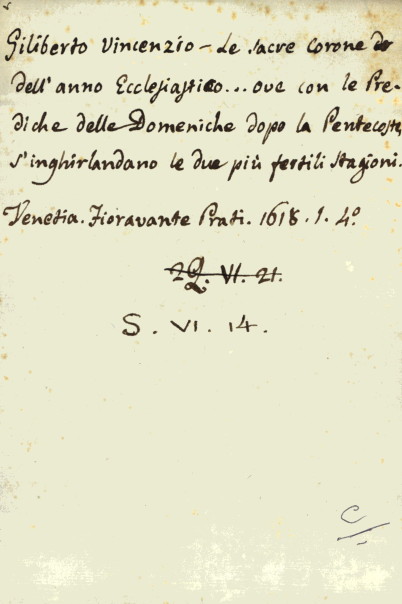 Giliberto Vincenzio - Le sacre corone
dell'anno Ecclesiastico... ove con le Pre-
diche delle Domeniche dopo la Pentecoste,
s'inghirlandano le due più fertili stagioni.
Venetia. Fioravante Prati. 1618. 1. 4º
2Q. VI. 21.
S. VI. 14.
C